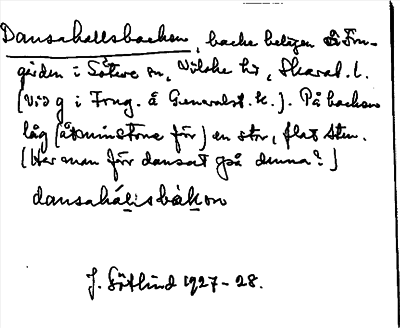 Dansahallsbacken, backe belägen å Frug-
gården i Sätere sn, Vilske hd, Skarab. l.
(Vid g i Frug. å Generalst. k.). På backen
låg (åtminstone förr) en stor, flat sten.
(Har man förr dansat på denna?)
dansahálisbàkɒn
J. Götlind 1927-28.